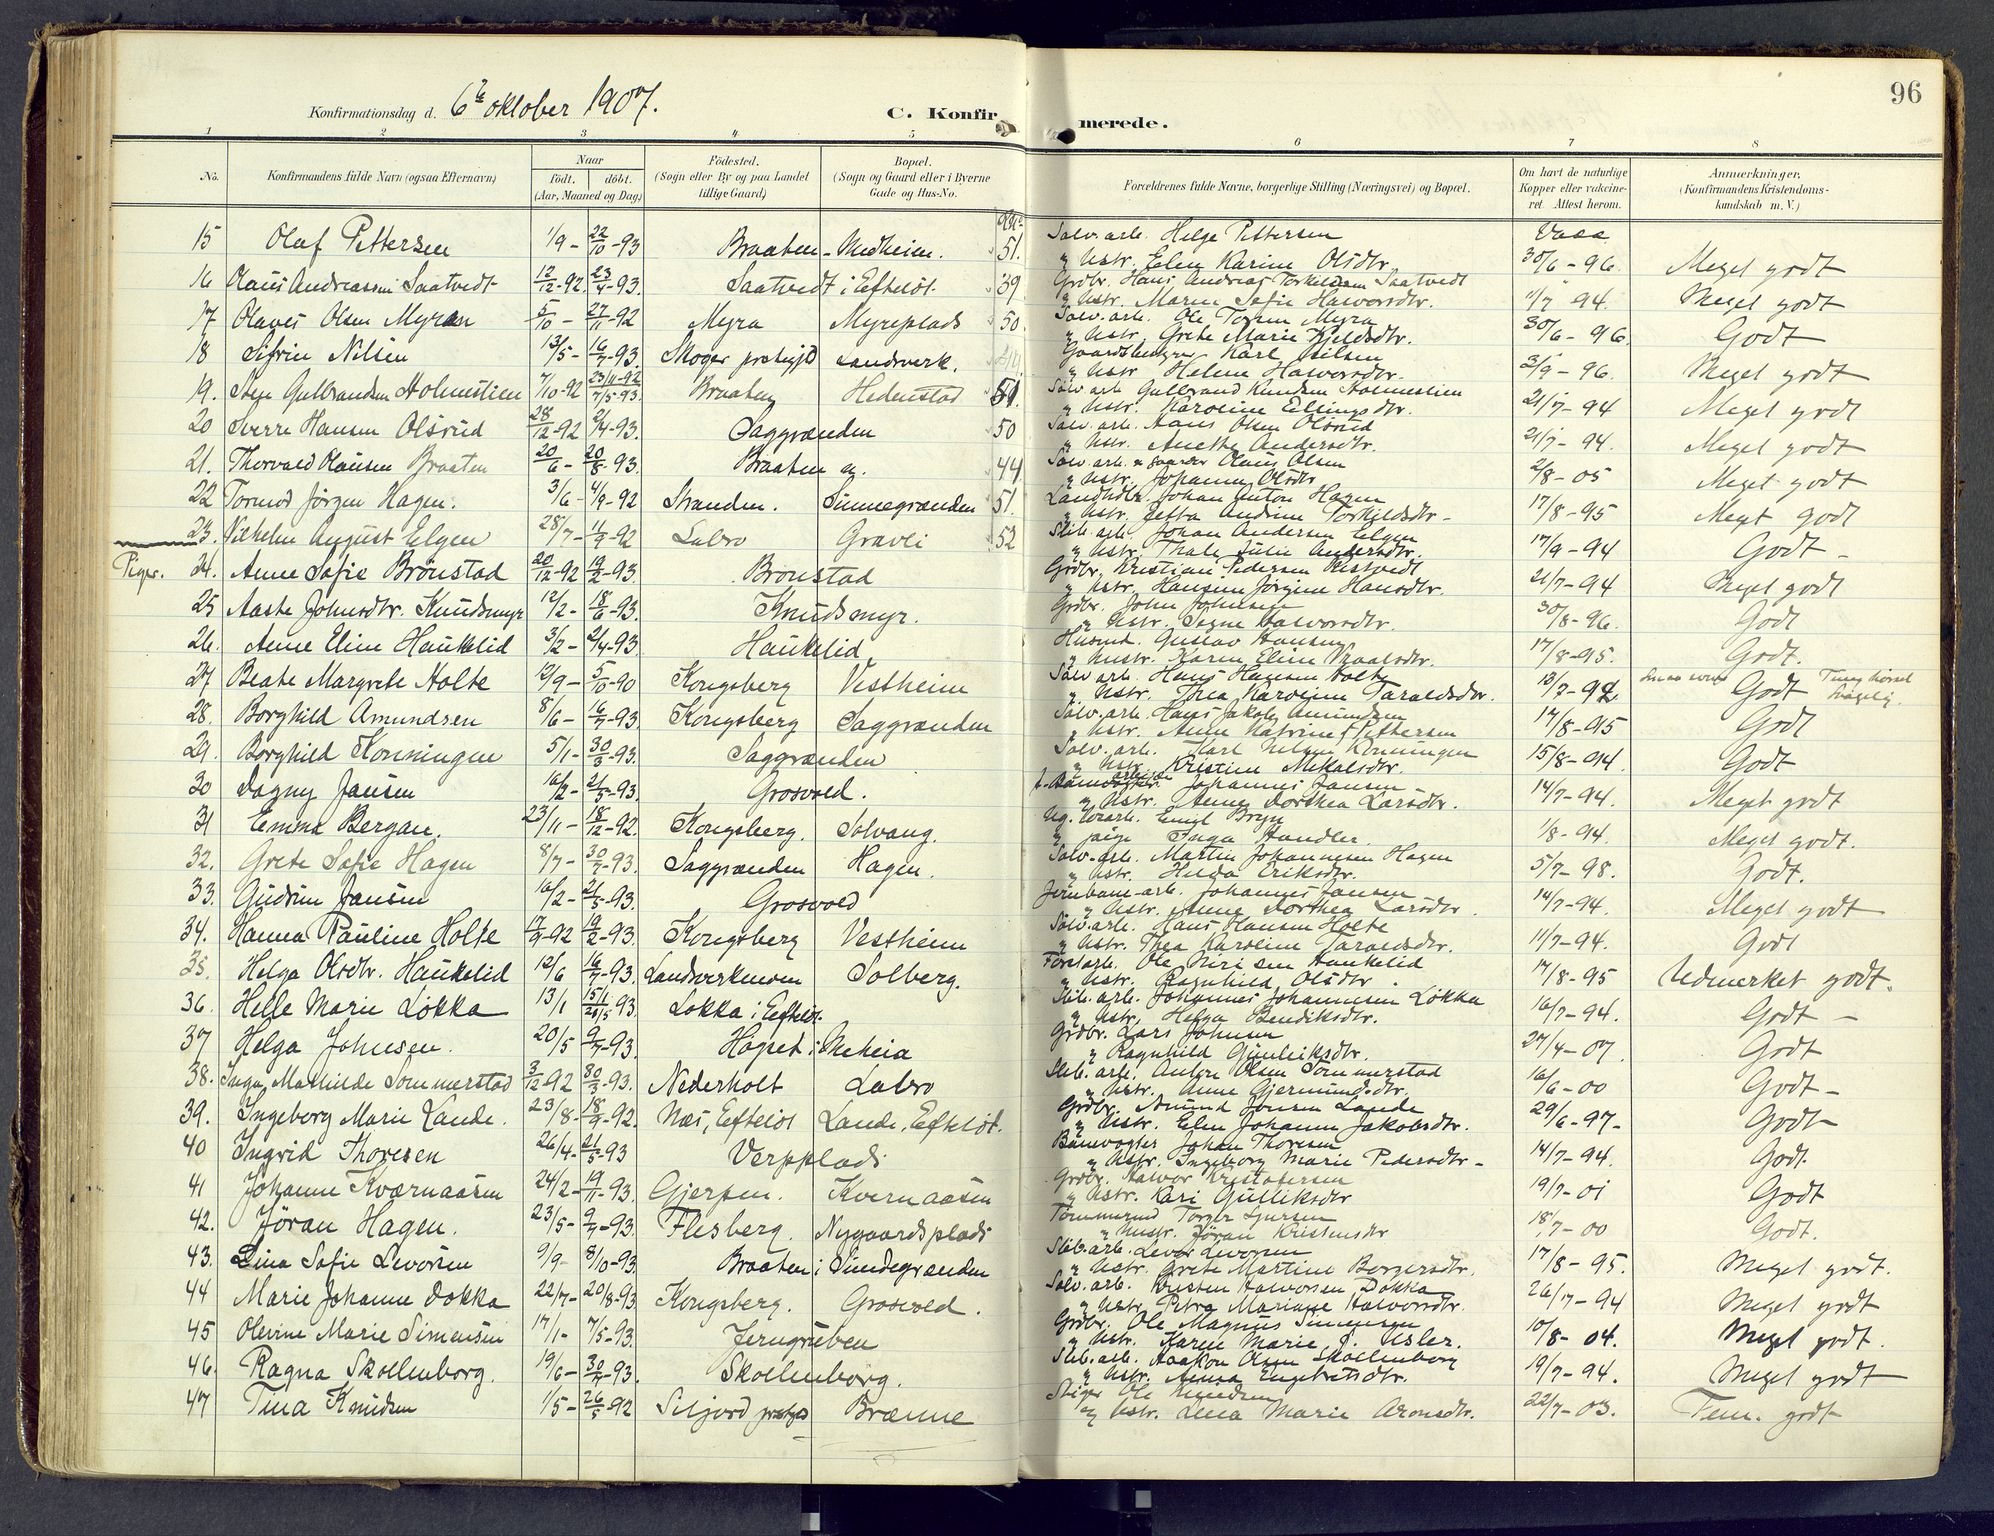 96
Konfirmationsdag d. 6te oktober 1907.
C. Konfirmerede.
1 2 3 4 5 6 7 8
No.
Konfirmandens fulde Navn (ogsaa Efternavn)
Naar
født. døbt.
(Aar, Maaned og Dag)
Fødested.
(Sogn eller By og paa Landet tillige Gaard)
Bopæl.
(Sogn og Gaard eller i Byerne Gade og Hus-No.
Forældrenes fulde Navne, borgerlige Stilling (Næringsvei) og Bopæl.
Om havt de naturlige Kopper eller vakcineret. Attest herom.
Anmærkninger.
(Konfirmandens Kristendomskundskab m. V.)
15 Olaf Pettersen 1/9 - 22/10 -93 Braaten - Medheim. 51. Sølv.arb. Helge Pettersen
" Hstr. Elen Karine Olsdtr. 30/6 - 96. Meget godt
16 Olaus Andreassen Saatvedt 12/12 -92. 23/4 -93. Saatvedt i Efteløt 39 Grdbr. Hans Andreas Torkildsen Saatvedt
" Hstr. Maren Sofie Halvorsdtr. 11/7 94. Meget godt
17 Olaves Olsen Myran 5/10 - 27/11 -92 Myra Myreplads 50. Sølv.arb. Ole Torsen Myra
" Hstr. Grete Marie Kjeldsdtr. 30/6 - 96. Godt
18 Sifrin Nilsen 13/5 - 16/7 -93. Skoger prstgjld Landverk. Gaardsbestyrer Karl Nilsen
" Hstr Helene Halvorsdtr. 3/9 - 96. Meget godt
19. Stege Gulbrandsen Holmstien 7/10 -92 23/11 -92 7/5 -93. Braaten Hedenstad 51. Sølv arb Gulbrand Knudsen Holmestien
" Hstr. Karoline Ellingsdtr. 21/7 - 94 Meget godt
20 Sverre Hansen Olsrud 28/12 -92 2/4 -93. Saggrænden 50 Sølv.arb. Hans Olsen Olsrud
" Hstr. Anethe Andersdtr. 21/7 - 94. Meget godt
21. Thorvald Olausen Braaten 20/6 - 20/8 -93. Braaten 44 Sølv.arb. Olaus Olsen
" Hstr. Johanne Olsdtr 2/8 - 05 Meget godt
22 Tormod Jørgen Hagen. 3/6 - 4/9 -92 Stranden. Sinnegrænden 51. Landhdlr. Johan Anton Hagen
" Hstr. Jetta Andrine Torkildsdtr - 17/8 - 95 Meget godt
23. Vilhelm August Elgen 28/7 - 11/9 -92 Labro Gravli 52 Slib.arb. Johan Andersen Elgen
" Hstr. Thale Julie Andersdtr. 17/9 - 94 Godt -
Piger.
24. Anne Sofie Brønstad 20/12 -92 19/2 -93. Brønstad Grdbr. Kristian Pedersen Vestvedt
" Hstr. Hansine Jørgine Hansdtr. 21/7 - 94 Meget godt
25 Aaste Johnsdtr. Knudsmyr 12/2 - 18/6 -93. Knudsmyr. Grdbr. John Johnsen
" Hstr. Signe Halvorsdtr. 30/8 - 96. Godt
26. Anne Eline Haukelid 3/2 - 2/4 -93. Haukelid Husmd. Gustav Hansen
" Hustr. Karen Eline Kraalsdtr. 17/8 - 95. Godt.
27 Beate Margrete Holte 12/9 - 5/10 -90 Kongsberg Vestheim Sølv arb. Hans Hansen Holte
" Hstr. Thea Karoline Taraldsdtr. 13/7 - 92. Godt Tunghørsel
28. Borghild Amundsen 8/6 - 16/7 -93. Kongsberg Saggrænden Sølv.arb. Hans Jakob Amundsen
" Hstr. Anne Katrine Pettersen 17/8 - 95 Godt
29. Borghild Konningen 5/1 - 30/3 -93. Saggrænden Sølv.arb. Karl Nilsen Konningen
" Hstr. Kristine Mikalsdtr. 15/8 - 94 Godt
30 Dagny Jansen 16/2 - 21/5 -93. Grosvold. Johannes Jansen -
" Hstr. Anne Dorthea Larsdtr. 14/7 - 94. Meget godt
31 Emma Bergan. 23/11 - 18/12 -92. Kongsberg. Solvang. Emil Bryn
" pige Inga Handler. 1/8 - 94. Meget godt.
32. Grete Sofie Hagen 8/7 - 30/7 -93. Saggrænden Hagen. Sølv.arb. Martin Johannesen Hagen
" Hstr. Hilda Eriksdtr. 5/7 - 98. Godt.
33. Gudrun Jansen 16/2 - 21/5 -93. Grosvold Jernbane-arb. Johannes Jansen
" Hstr. Anne Dorthea Larsdtr. 14/7 - 94. Meget godt
34. Hanna Pauline Holte 17/9 -92 19/2 -93. Kongsberg Vestheim Sølv.arb. Hans Hansen Holte
" Hstr. Thea Karoline Taraldsdtr. 11/7 - 94. Godt
35. Helga Olsdtr. Haukelid 12/6 16/7 -93. Landsverkmoen Solberg. Forstarb. Ole Nirisen Haukelid
" Hstr. Ragnhild Olsdtr. 17/8 - 95 Udmerket godt.
36. Helle Marie Løkka 13/1 15/1 21/5 93. Løkka i Efteløt. Slib.arb. Johannes Johannesen Løkka
" Hstr. Helga Bendiksdtr. 16/7 - 94. Godt -
37 Helga Johnsen. 20/5 9/7 -93. Høgset i Meheia Grdbr. Lars Johnsen
" Ragnhild Gunleiksdtr. 27/4 - 07. Godt
38. Inga Mathilde Sommerstad 3/12 -92 30/3 -93. Nederholt Labro Slib.arb. Anton Olsen Sommerstad
" Hstr. Anne Gjermundsdtr. 16/6 - 00 Godt -
39. Ingeborg Marie Lande. 23/8 - 18/9 -92. Næs, Efteløt Lande, Efteløt. Grdbr. Amund Jonsen Lande
" Hstr. Elen Johanne Jakobsdtr. 29/6 - 97 - Godt
40 Ingrid Thoresen 26/4 - 21/5 -93 Verpplads Banevogter Johan Thoresen
" Hstr. Ingeborg Marie Pedersdtr - 14/7 - 94. Godt.
41 Johanne Kværnaasen 24/2 - 19/11 -93. Gjerpen. Kvernaasen Grdbr. Halvor Kristofersen
" Hstr. Kari Gulliksdtr 19/7 - 01 Godt
42. Jøran Hagen. 23/5 - 9/7 -93. Flesberg. Nygaardsplads Tømmermd Torger Sjursen
" Hustr. Jøran Kristensdtr 18/7 - 00 Godt.
43. Lina Sofie Levorsen 9/9 - 8/10 -93 Braaten i Sundegrænden Slib.arb. Levor Levorsen
" Hstr. Grete Martine Borgersdtr. 17/8 - 95. Meget godt.
44 Marie Johanne Dokka 22/7 - 20/8 -93 Kongsberg. Grosvold. Sølv.arb. Kristen Halvorsen Dokka
" Hstr. Petra Mariane Halvorsdtr. 26/7 - 94 Meget godt
45 Olevine Marie Simensen 17/1 - 7/5 -93. Jerngruben Grdbr. Ole Magnus Simensen
" Hstr. Karen Marie J. Usler. 10/8 - 04. Meget godt.
46. Ragna Skollenborg. 19/6 - 30/7 -93. Skollenborg. Slib.arb. Haakon Olsen Skollenborg
" Hstr. Anna Engebretsdtr. 19/7 - 94. Meget godt
47 Tina Knudsen 1/5 - 26/5 -92 Siljord prstgjd Brænne Stiger Ole Knudsen
" Hstr. Lena Marie Aronsdtr. 22/7 - 03. Tem. godt